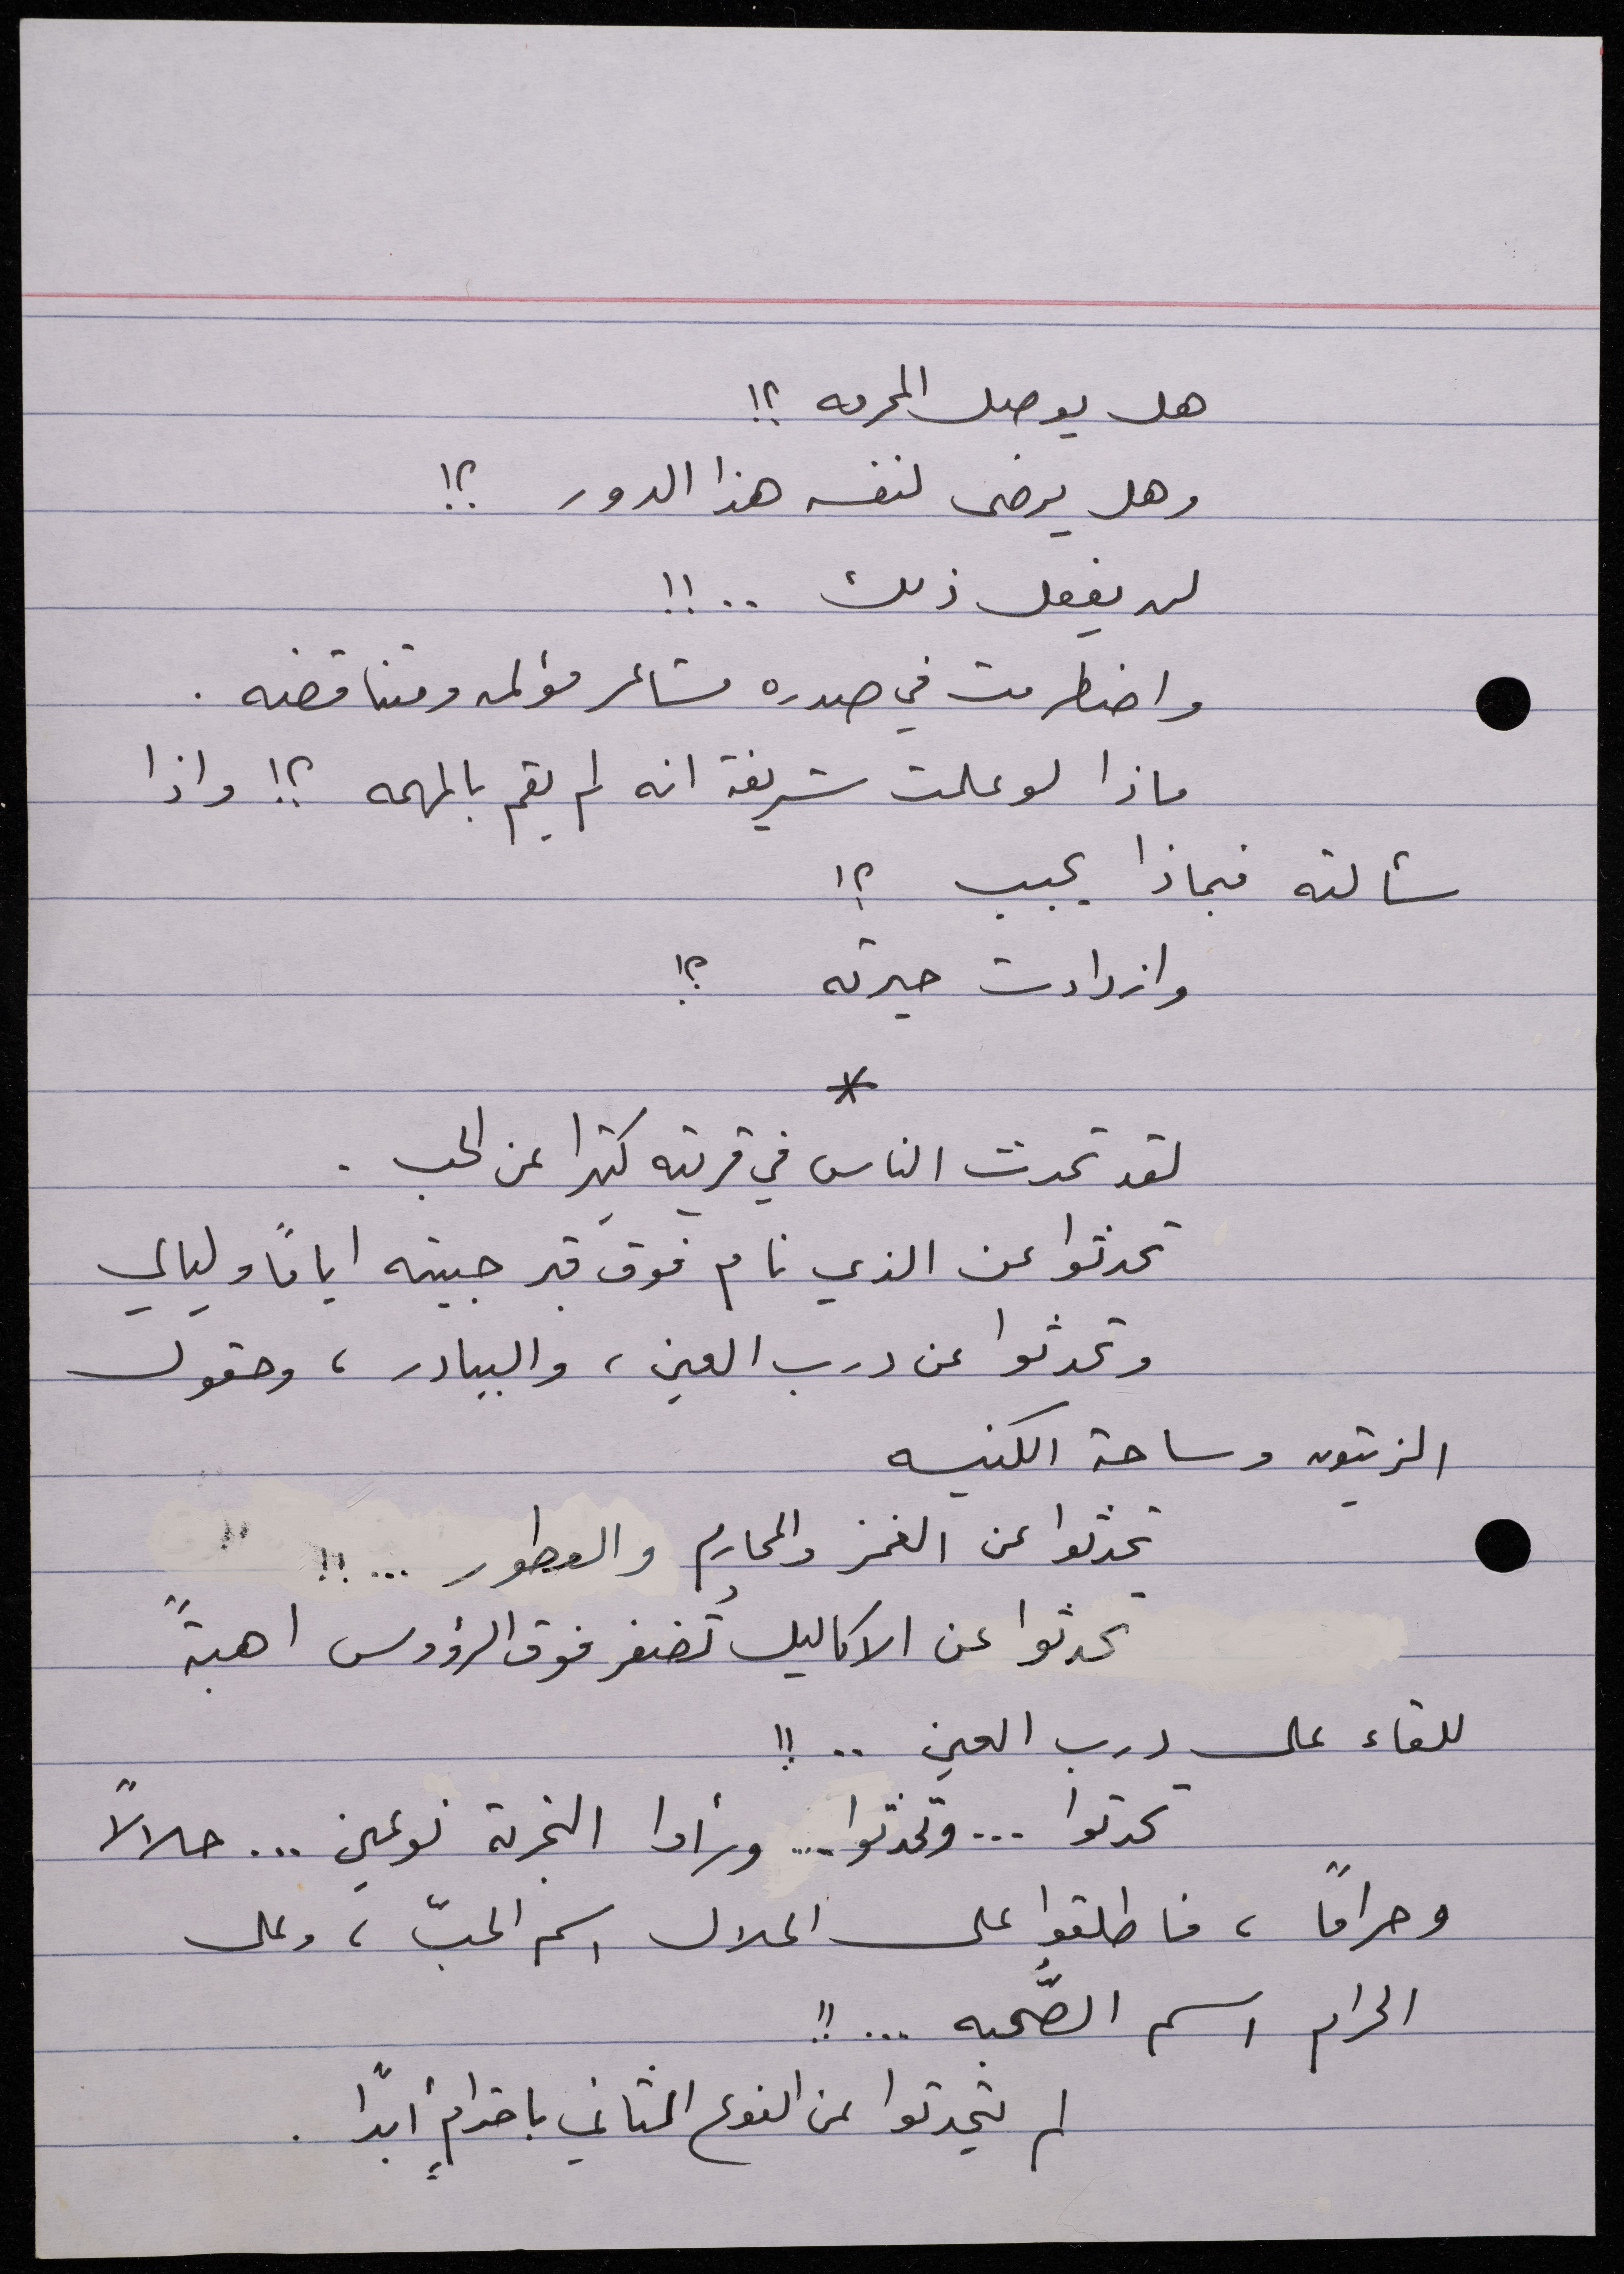 هل يوصل المحرمه ؟!
وهل يرضى لنفسه هذا الدور ؟!
لن يفعل ذلك ..!!
واضطرمت في صدره مشاعر مؤلمه ومتناقضه .
ماذا لو علمت شريفة انه لم يقم بالمهمه ؟! واذا
سألته فبماذا يجيب ؟!
وازدادت حيرته ؟!
*
لقد تحدث الناس في قريته كثيرا عن الحب .
تحدثوا عن الذي نام فوق قبر حبيبته اياماً وليالي
وتحدثوا عن درب العين ، والبيادر ، وحقول
الزيتون وساحة الكنيسه
تحدثوا عن الغمز والمحارم والعطور ...!!
تحدثوا عن الاكاليل تُضفر فوق الرؤوس اهبةً
للقاء على درب العين ..!!
تحدثوا ... وتحدثوا ... ورأوا التجربة نوعين ... حلالاً
وحراماً ، فاطلقوا على الحلال اسم الحبّ ، وعلى
الحرام اسم الصُّحبه ...!!
لم يتحدثوا عن النوع الثاني باحترامٍ أبداً .